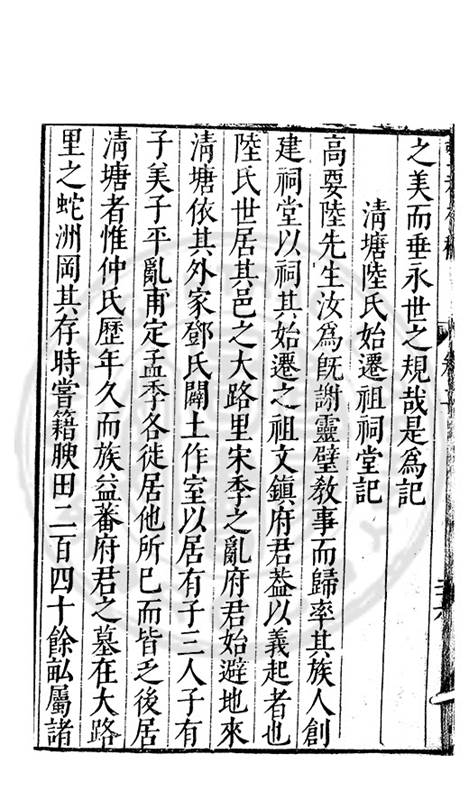 之美而垂永世之規哉是爲記
清塘陸氏始遷祖祠堂記
高要陸先生汝爲旣謝靈璧敎事而歸率其族人創
建祠堂以祠其始遷之祖文鎭府君葢以義起者也
陸氏世居其邑之大路里宋季之亂府君始避地來
清塘依其外家鄧氏闢土作室以居有子三人子有
子美子平亂甫定孟季各徙居他所已而皆乏後居
清塘者惟仲氏歷年久而族益蕃府君之墓在大路
里之蛇洲岡其存時嘗籍腴田二百四十餘畝屬諸